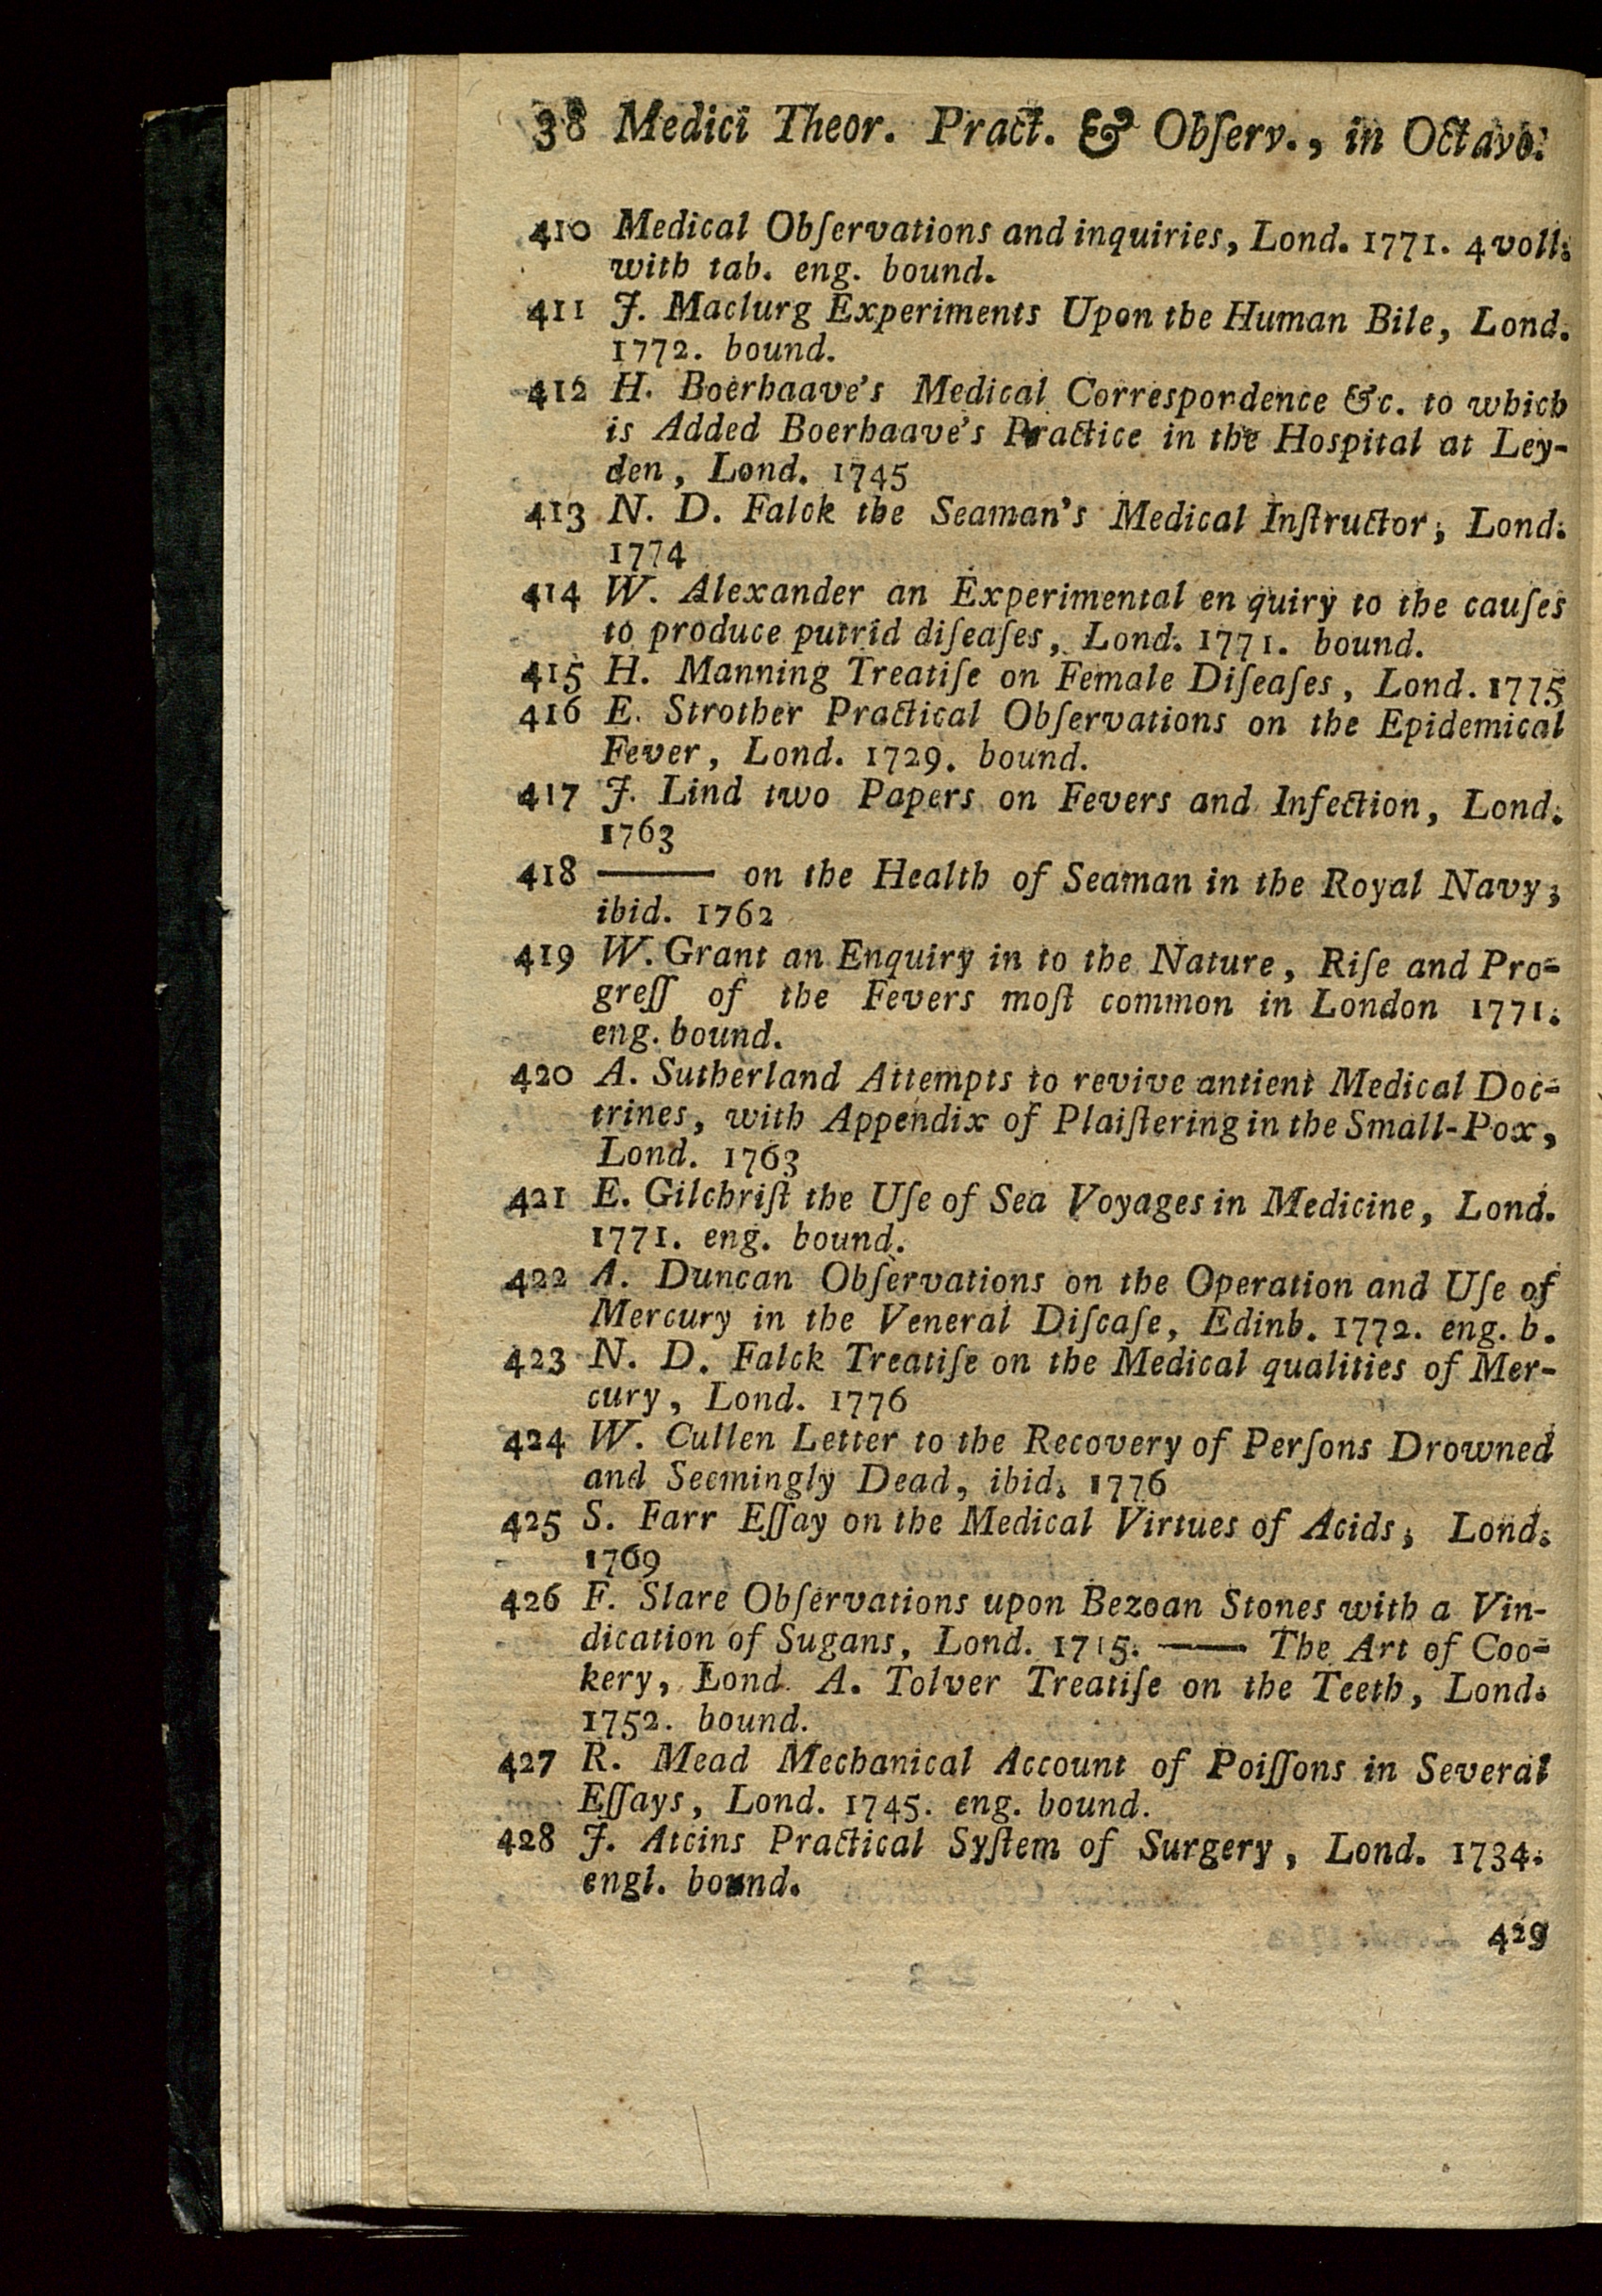 38 Medici Theor. Pract. & Obſerv., in Octavo.
410 Medical Obſervations and inquiries, Lond. 1771. 4 voll.
with tab. eng. bound.
411 J. Maclurg Experiments Upon the Human Bile, Lond.
1772. bound.
412 H. Boerhaave's Medical Correspondence &c. to which
is Added Boerhaave's Practice in the Hospital at Ley-
den, Lond. 1745
413 N. D. Falck the Seaman's Medical Inſtructor, Lond.
1774
414 W. Alexander an Experimental en quiry to the cauſes
to produce putrid diſeaſes, Lond. 1771. bound.
415 H. Manning Treatiſe on Female Diſeaſes, Lond. 1775
416 E. Strother Practical Obſervations on the Epidemical
Fever, Lond. 1729. bound.
417 J. Lind two Papers on Fevers and Infection, Lond.
1763
418 ——— on the Health of Seaman in the Royal Navy,
ibid. 1762
419 W. Grant an Enquiry in to the Nature, Riſe and Pro-
greſſ of the Fevers moſt common in London 1771.
eng. bound.
420 A. Sutherland Attempts to revive antient Medical Doc-
trines, with Appendix of Plaiſtering in the Small-Pox,
Lond. 1763
421 E. Gilchriſt the Uſe of Sea Voyages in Medicine, Lond.
1771. eng. bound.
422 A. Duncan Obſervations on the Operation and Uſe of
Mercury in the Veneral Diſcaſe, Edinb. 1772. eng. b.
423 N. D. Falck Treatiſe on the Medical qualities of Mer-
cury, Lond. 1776
424 W. Cullen Letter to the Recovery of Perſons Drowned
and Seemingly Dead, ibid. 1776
425 S. Farr Eſſay on the Medical Virtues of Acids, Lond.
1769
426 F. Slare Obſervations upon Bezoan Stones with a Vin-
dication of Sugans, Lond. 1715. ——— The Art of Coo-
kery, Lond. A. Tolver Treatiſe on the Teeth, Lond.
1752. bound.
427 R. Mead Mechanical Account of Poiſſons in Several
Eſſays, Lond. 1745. eng. bound.
428 J. Atcins Practical Syſtem of Surgery, Lond. 1734.
engl. bound.
429